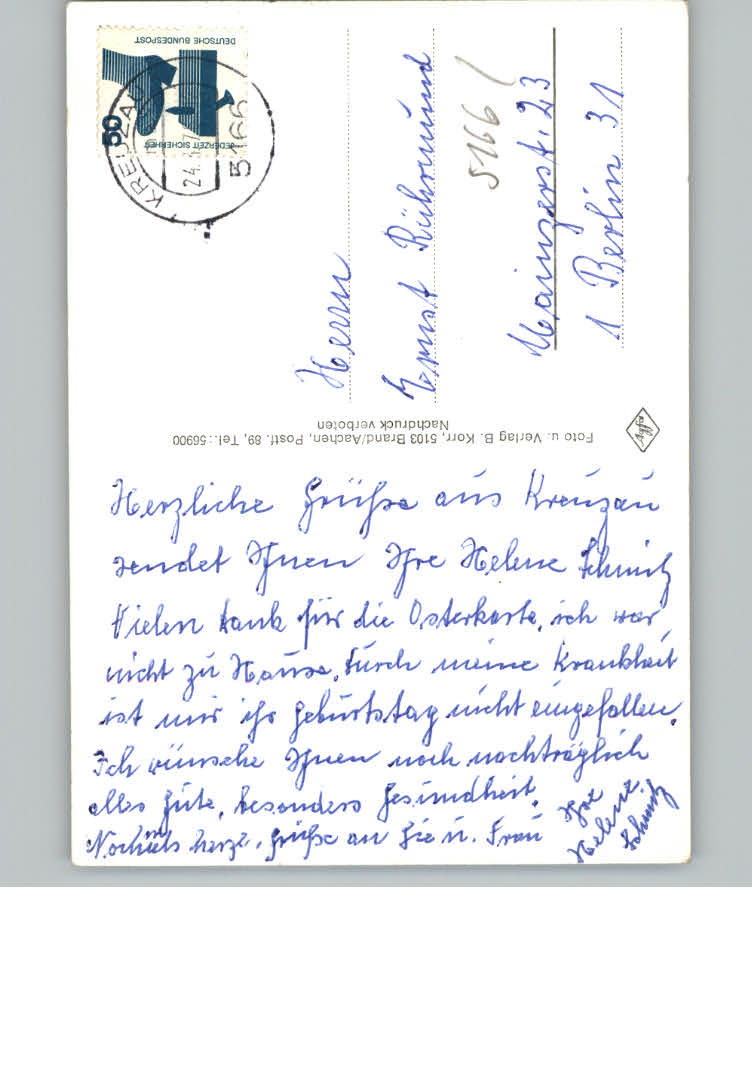 Herzliche Grüße aus Kreuzau
sendet Ihnen Ihre Helene Schmitz
Vielen Dank für die Osterkarte, ich war
nicht zu Hause, durch meine Krankheit
ist mir ihr Geburtstag nicht eingefallen.
Ich wünsche Ihnen noch nachträglich
alles Gute, besonders Gesundheit.
Nochmals herzl. Grüße an Sie u. Frau
Ihre
Helene
Schmitz
Foto u. Verlag B. Korr, 5103 Brand/Aachen, Postf. 89, Tel.: 56900
Nachdruck verboten
Agfa
DEUTSCHE BUNDESPOST
JEDERZEIT SICHERHEIT
50
KREUZAU
24.
5166
Herrn
Ernst Rührmund
5166 /
Mainzerst. 23
1 Berlin 31